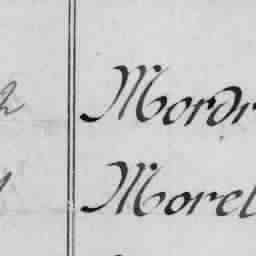 2 Mordr
Morel